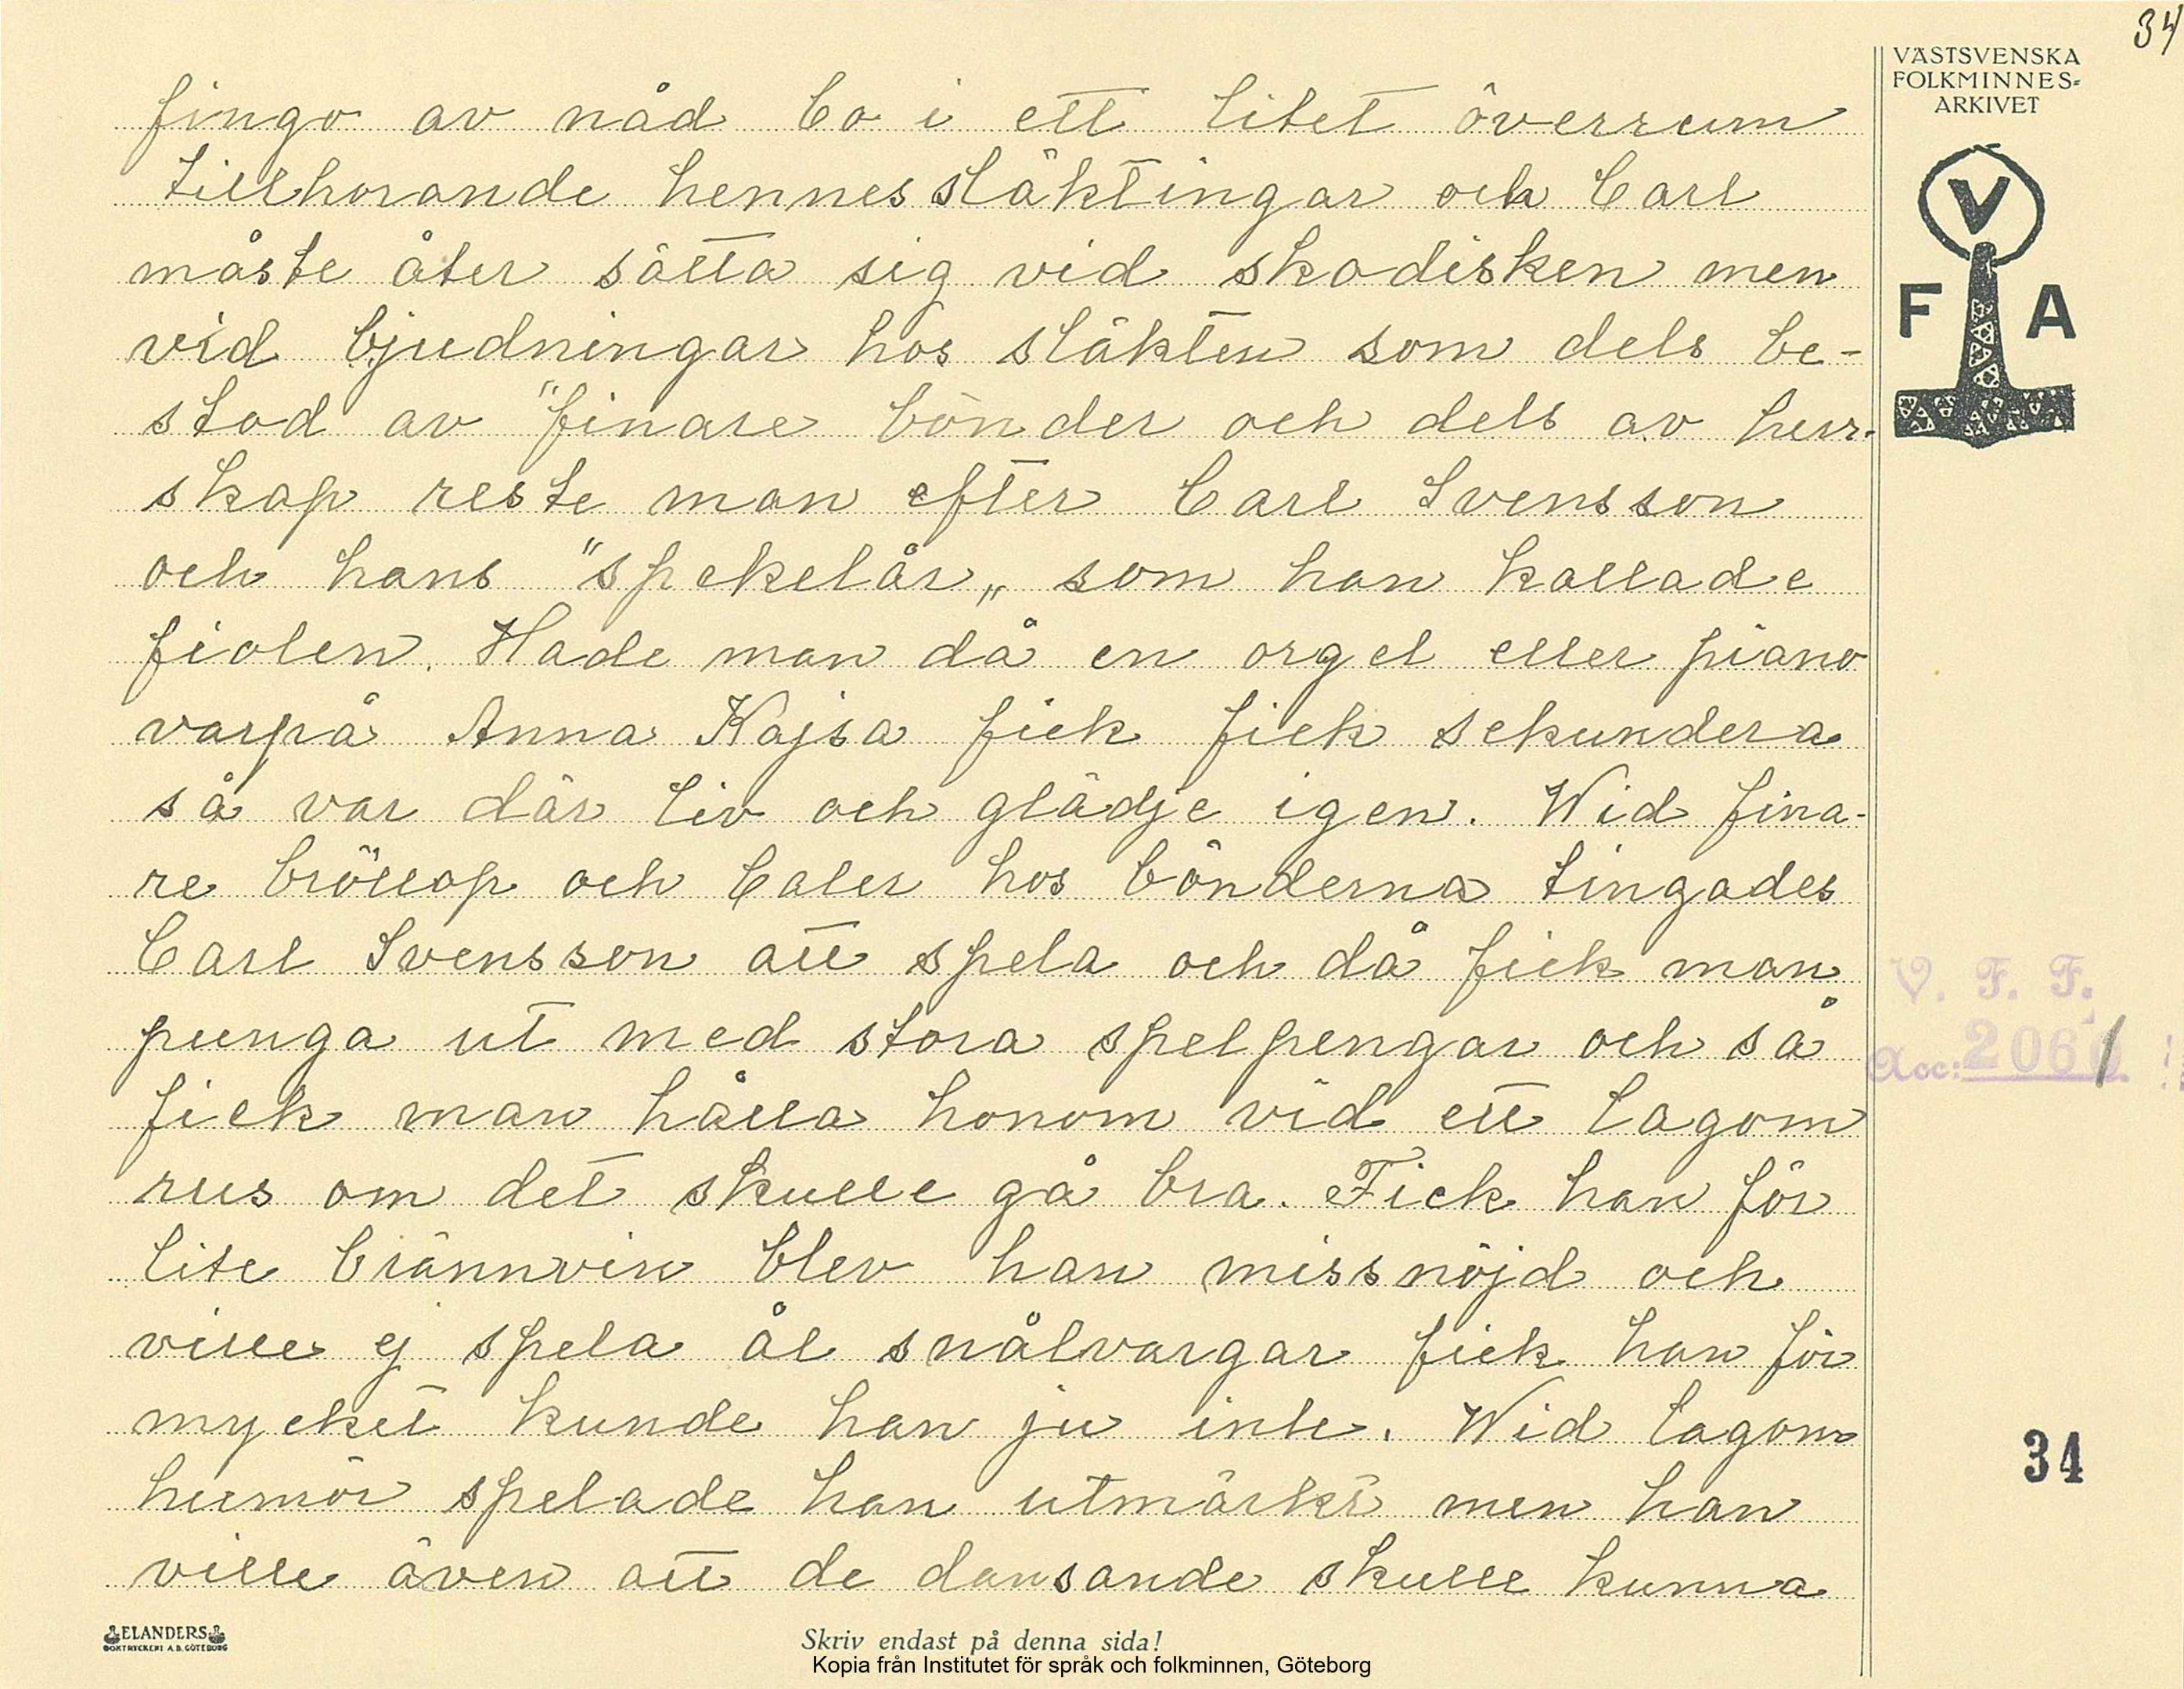 34
VÄSTSVENSKA
FOLKMINNES-
ARKIVET
V
F A
fingo av nåd bo i ett litet överrum
tillhorande hennes släktingar och Carl
måste åter sätta sig vid skodisken men
vid bjudningar hos släkten som dels be-
stod av "finare bönder och dels av herr-
skap reste man efter Carl Svensson
och hans "spekelår„ som han kallade
fiolen. Hade man då en orgel eller piano
varpå Anna Kajsa fick fick sekundera
så var där liv och glädje igen. Wid fina-
re bröllop och baler hos bönderna tingades
Carl Svensson att spela och då fick man
punga ut med stora spelpengar och så
fick man hålla honom vid ett lagom
rus om det skulle gå bra. Fick han för
lite brännvin blev han missnöjd och
ville ej spela ål snålvargar fick han för
mycket kunde han ju inte. Wid lagom
humör spelade han utmärkt men han
ville även att de dansande skulle kunna
V. F. F.
Acc: 2061
34
ELANDERS
BOKTRYCKERI A.B. GÖTEBORG
Skriv endast på denna sida!
Kopia från Institutet för språk och folkminnen, Göteborg